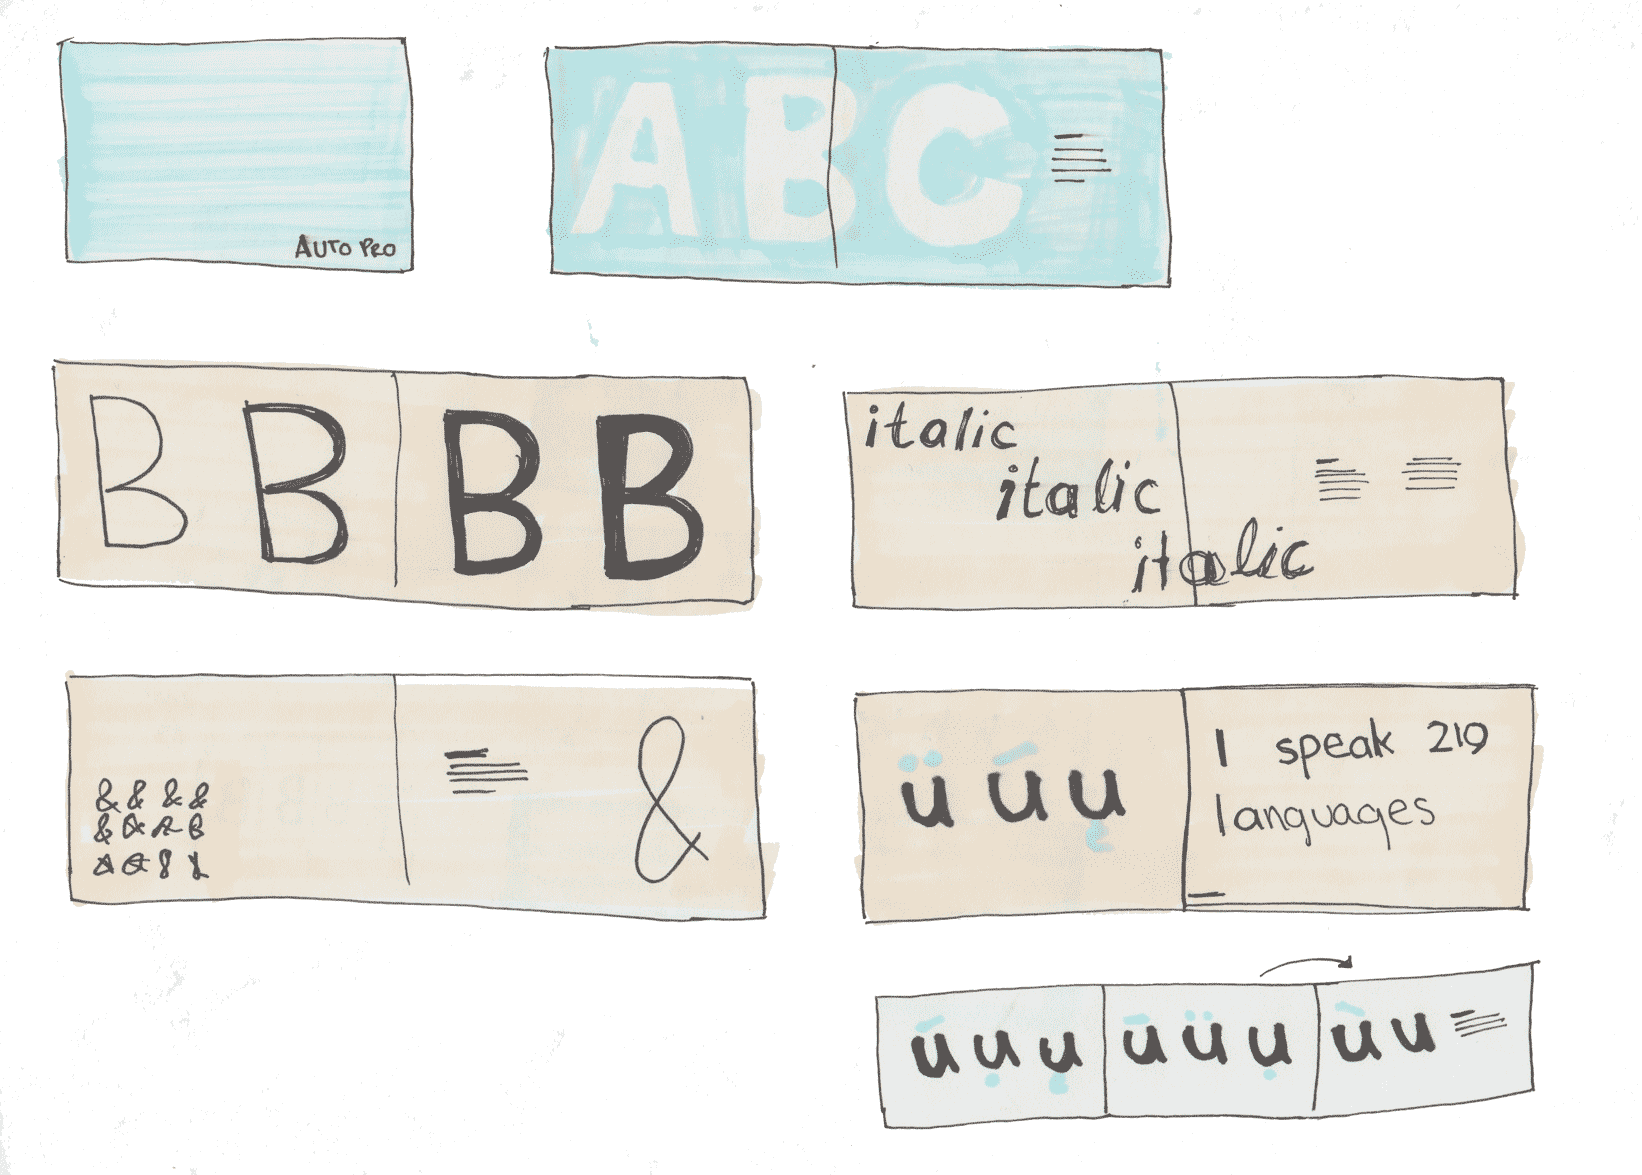 AUTO PRO
ABC
B B B B
italic
italic
italic
& & & &
& & & &
& & & &
&
ü ú ų
I speak 219
languages
ú ụ ų ū ü ụ ù u